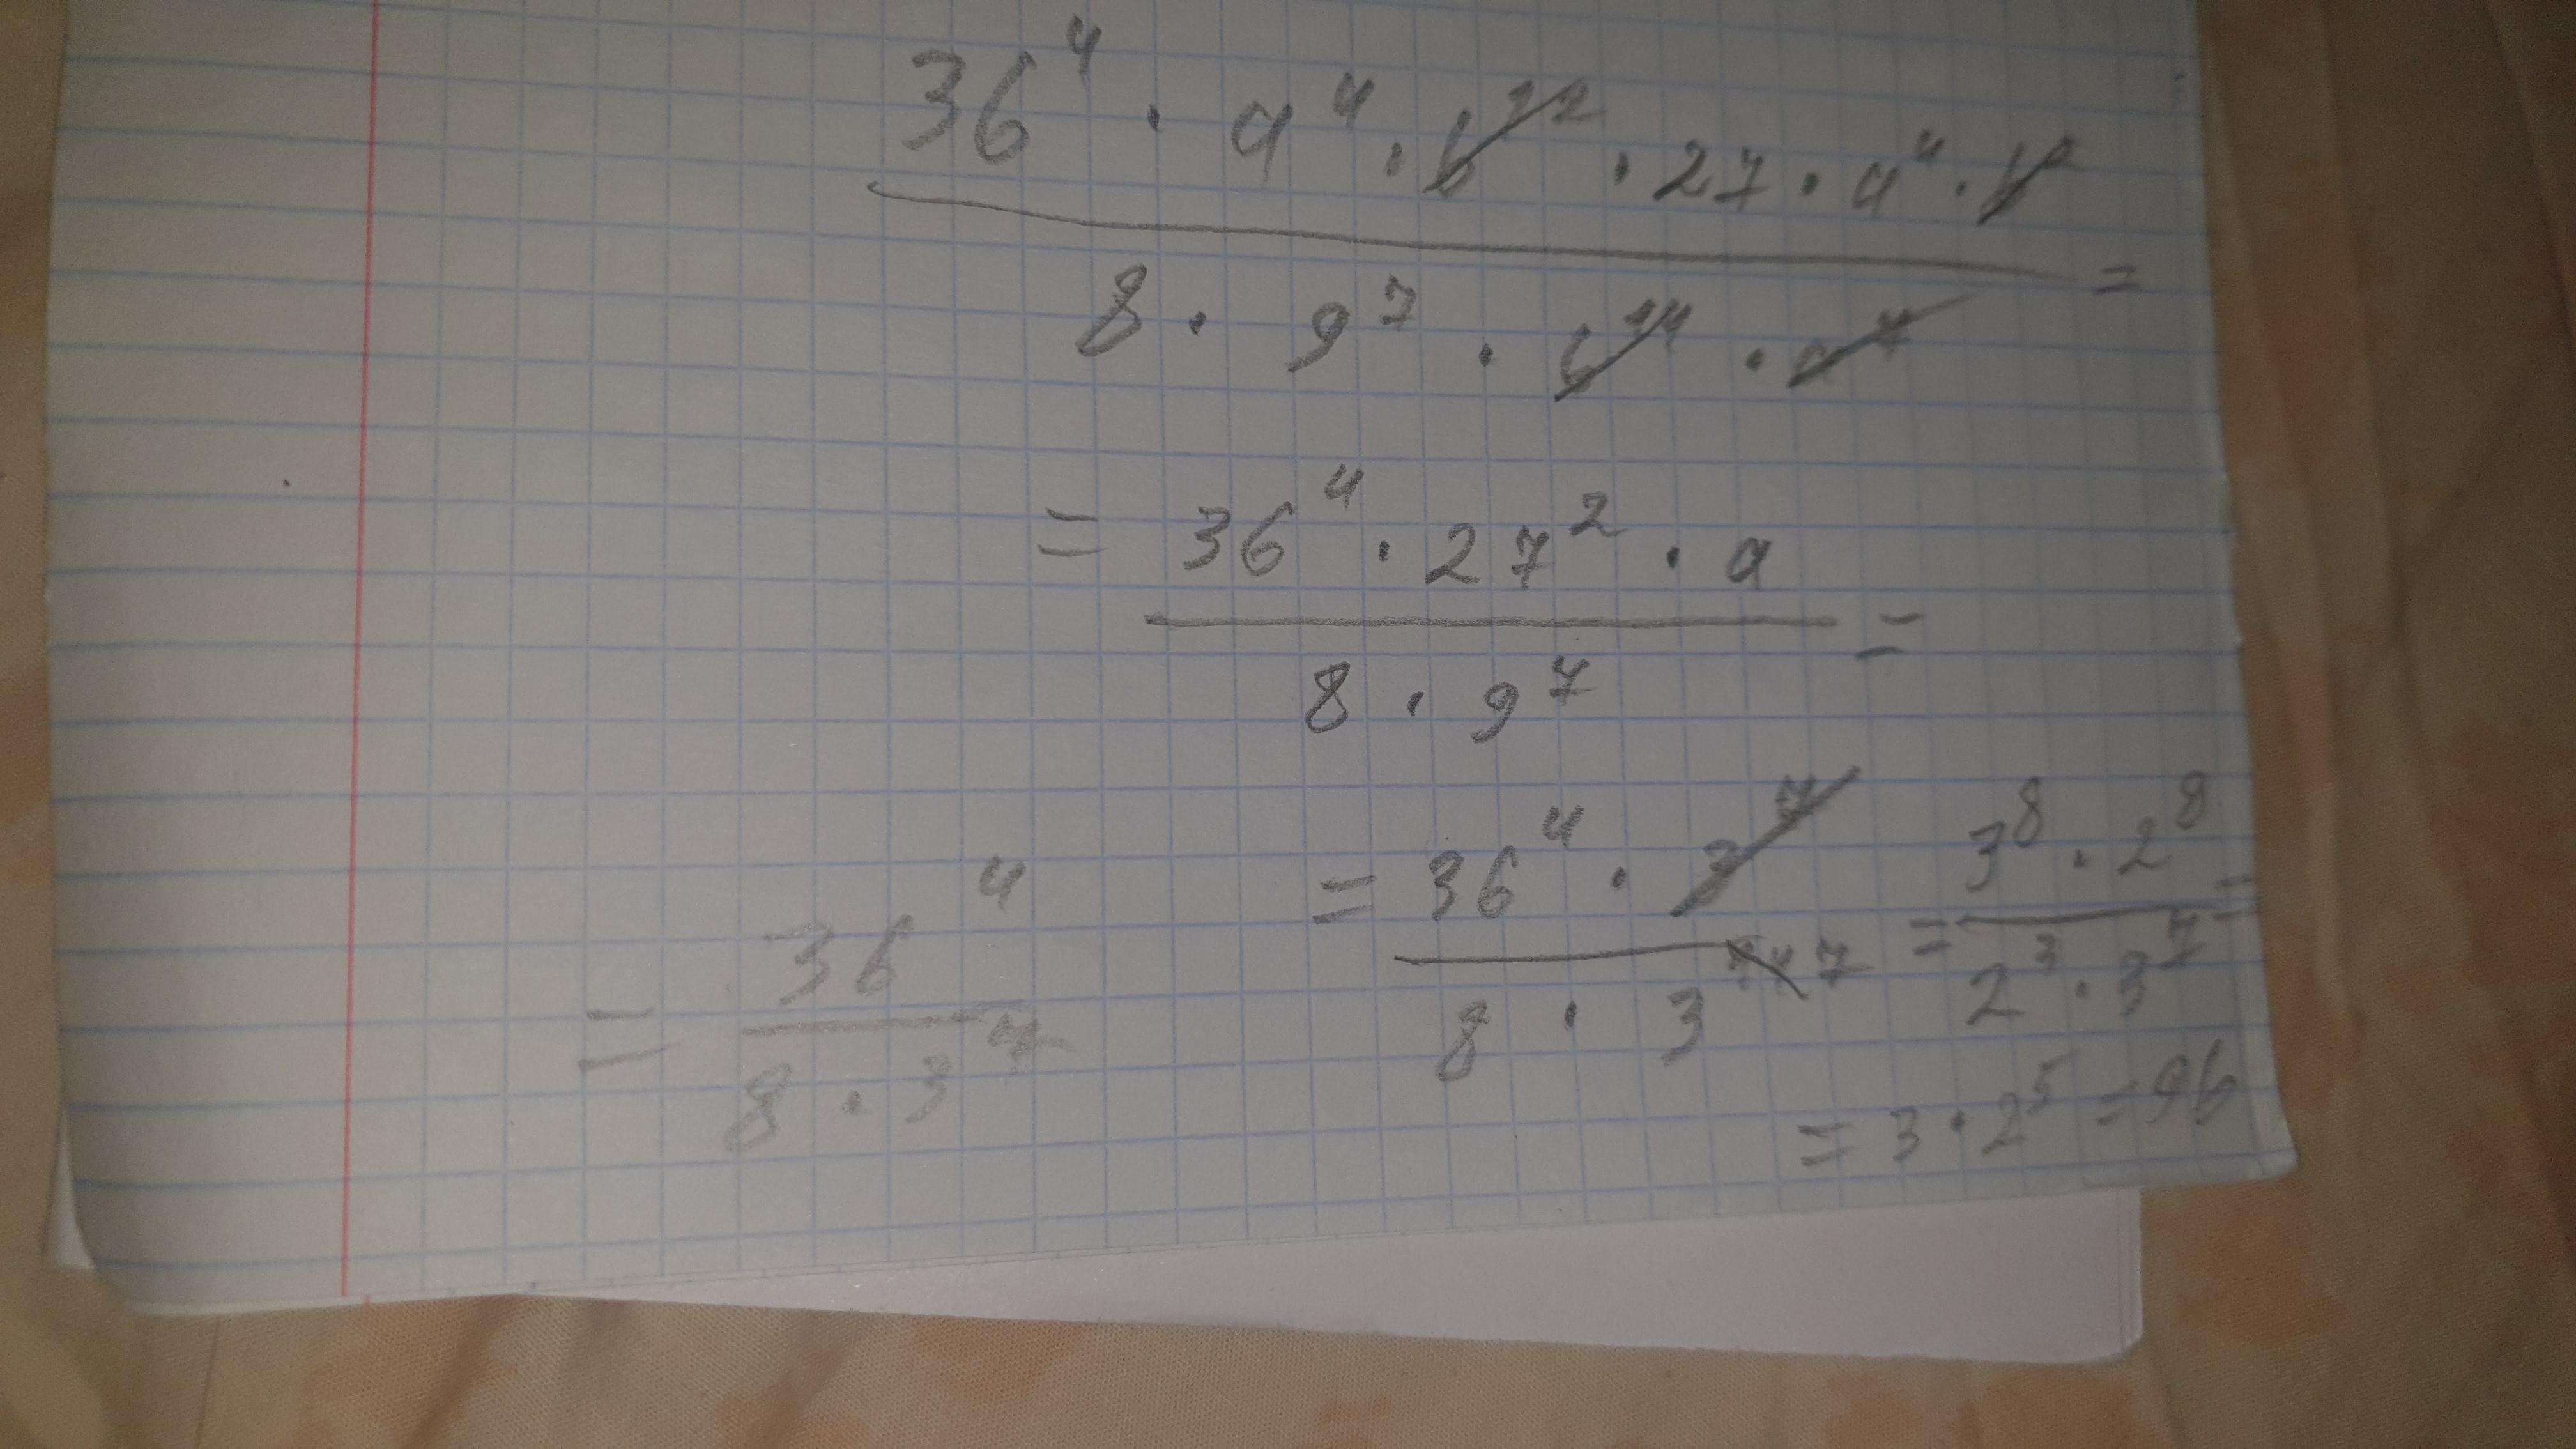 36⁴ · a⁴ · b¹² · 27 · a⁴ · b²
8 · 9⁷ · b¹⁴ · a⁷ =
= 36⁴ · 27² · a
8 · 9⁷ =
= 36⁴
8 · 3⁷
= 36⁴ · 3⁷
8 · 3¹⁴ ⁷
= 3⁸ · 2⁸
2³ · 3⁷ =
= 3 · 2⁵ = 96